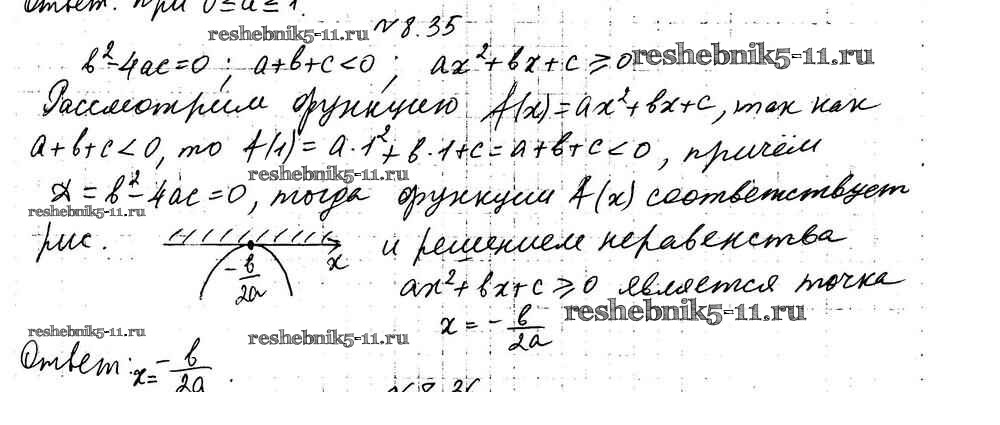 Ответ: при 0 ≤ a ≤ 1.
reshebnik5-11.ru №8.35
b²-4ac=0; a+b+c<0; ax²+bx+c≥0 reshebnik5-11.ru
Рассмотрим функцию f(x)=ax²+bx+c, так как
a+b+c<0, то f(1)=a·1²+b·1+c=a+b+c<0, причём
reshebnik5-11.ru
D=b²-4ac=0, тогда функции f(x) соответствует
reshebnik5-11.ru
рис. x -b/2a и решением неравенства
ax²+bx+c≥0 является точка
reshebnik5-11.ru
x=-b/2a
reshebnik5-11.ru reshebnik5-11.ru
Ответ: x=-b/2a.